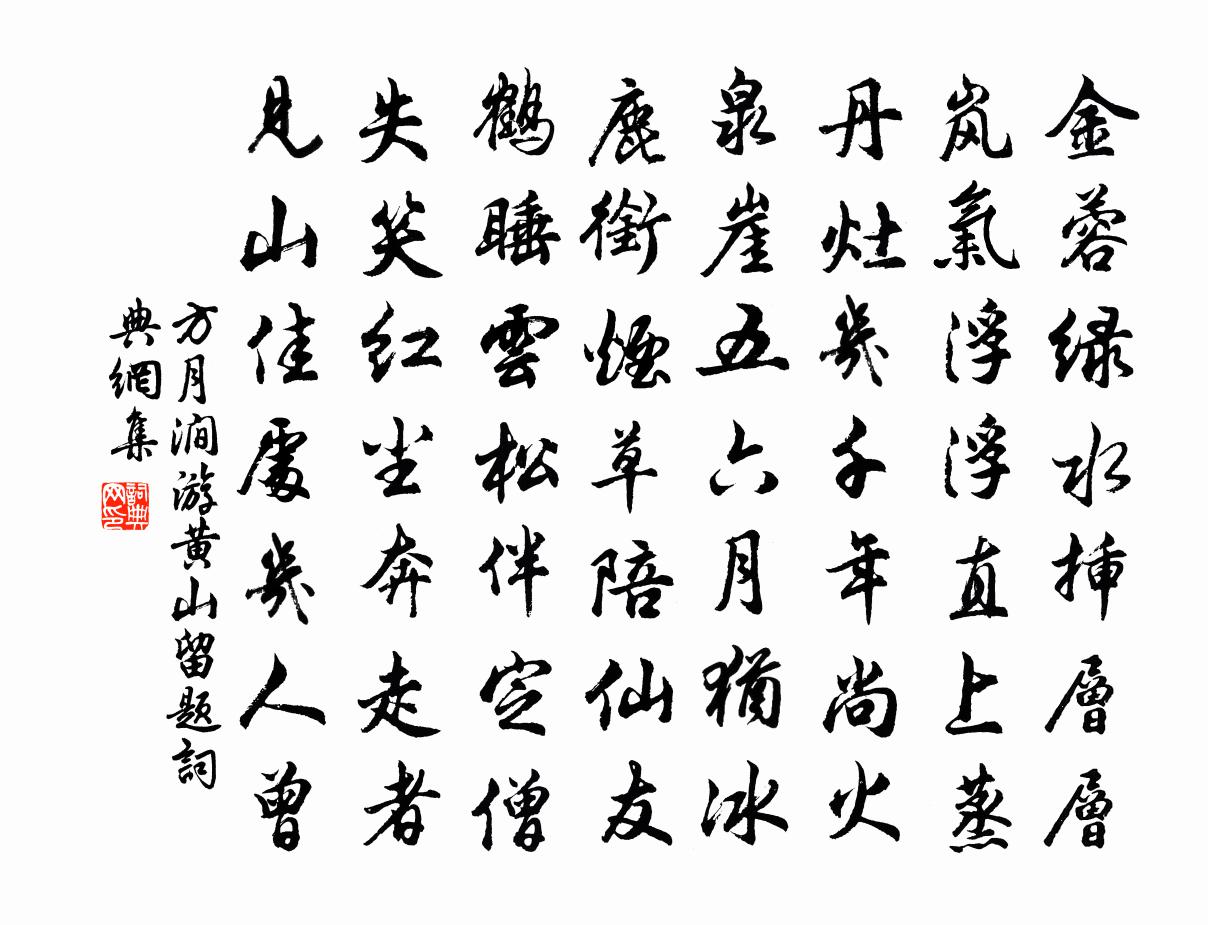 金蓉绿水揷層層
岚氣浮浮直上蒸
丹灶幾千年尚火
泉崖五六月猶冰
鹿銜煙草陪仙友
鶴睡雲松伴定僧
失笑红尘奔走者
見山佳處幾人曾
方月澗游黄山留题詞
典網集
詞典网印